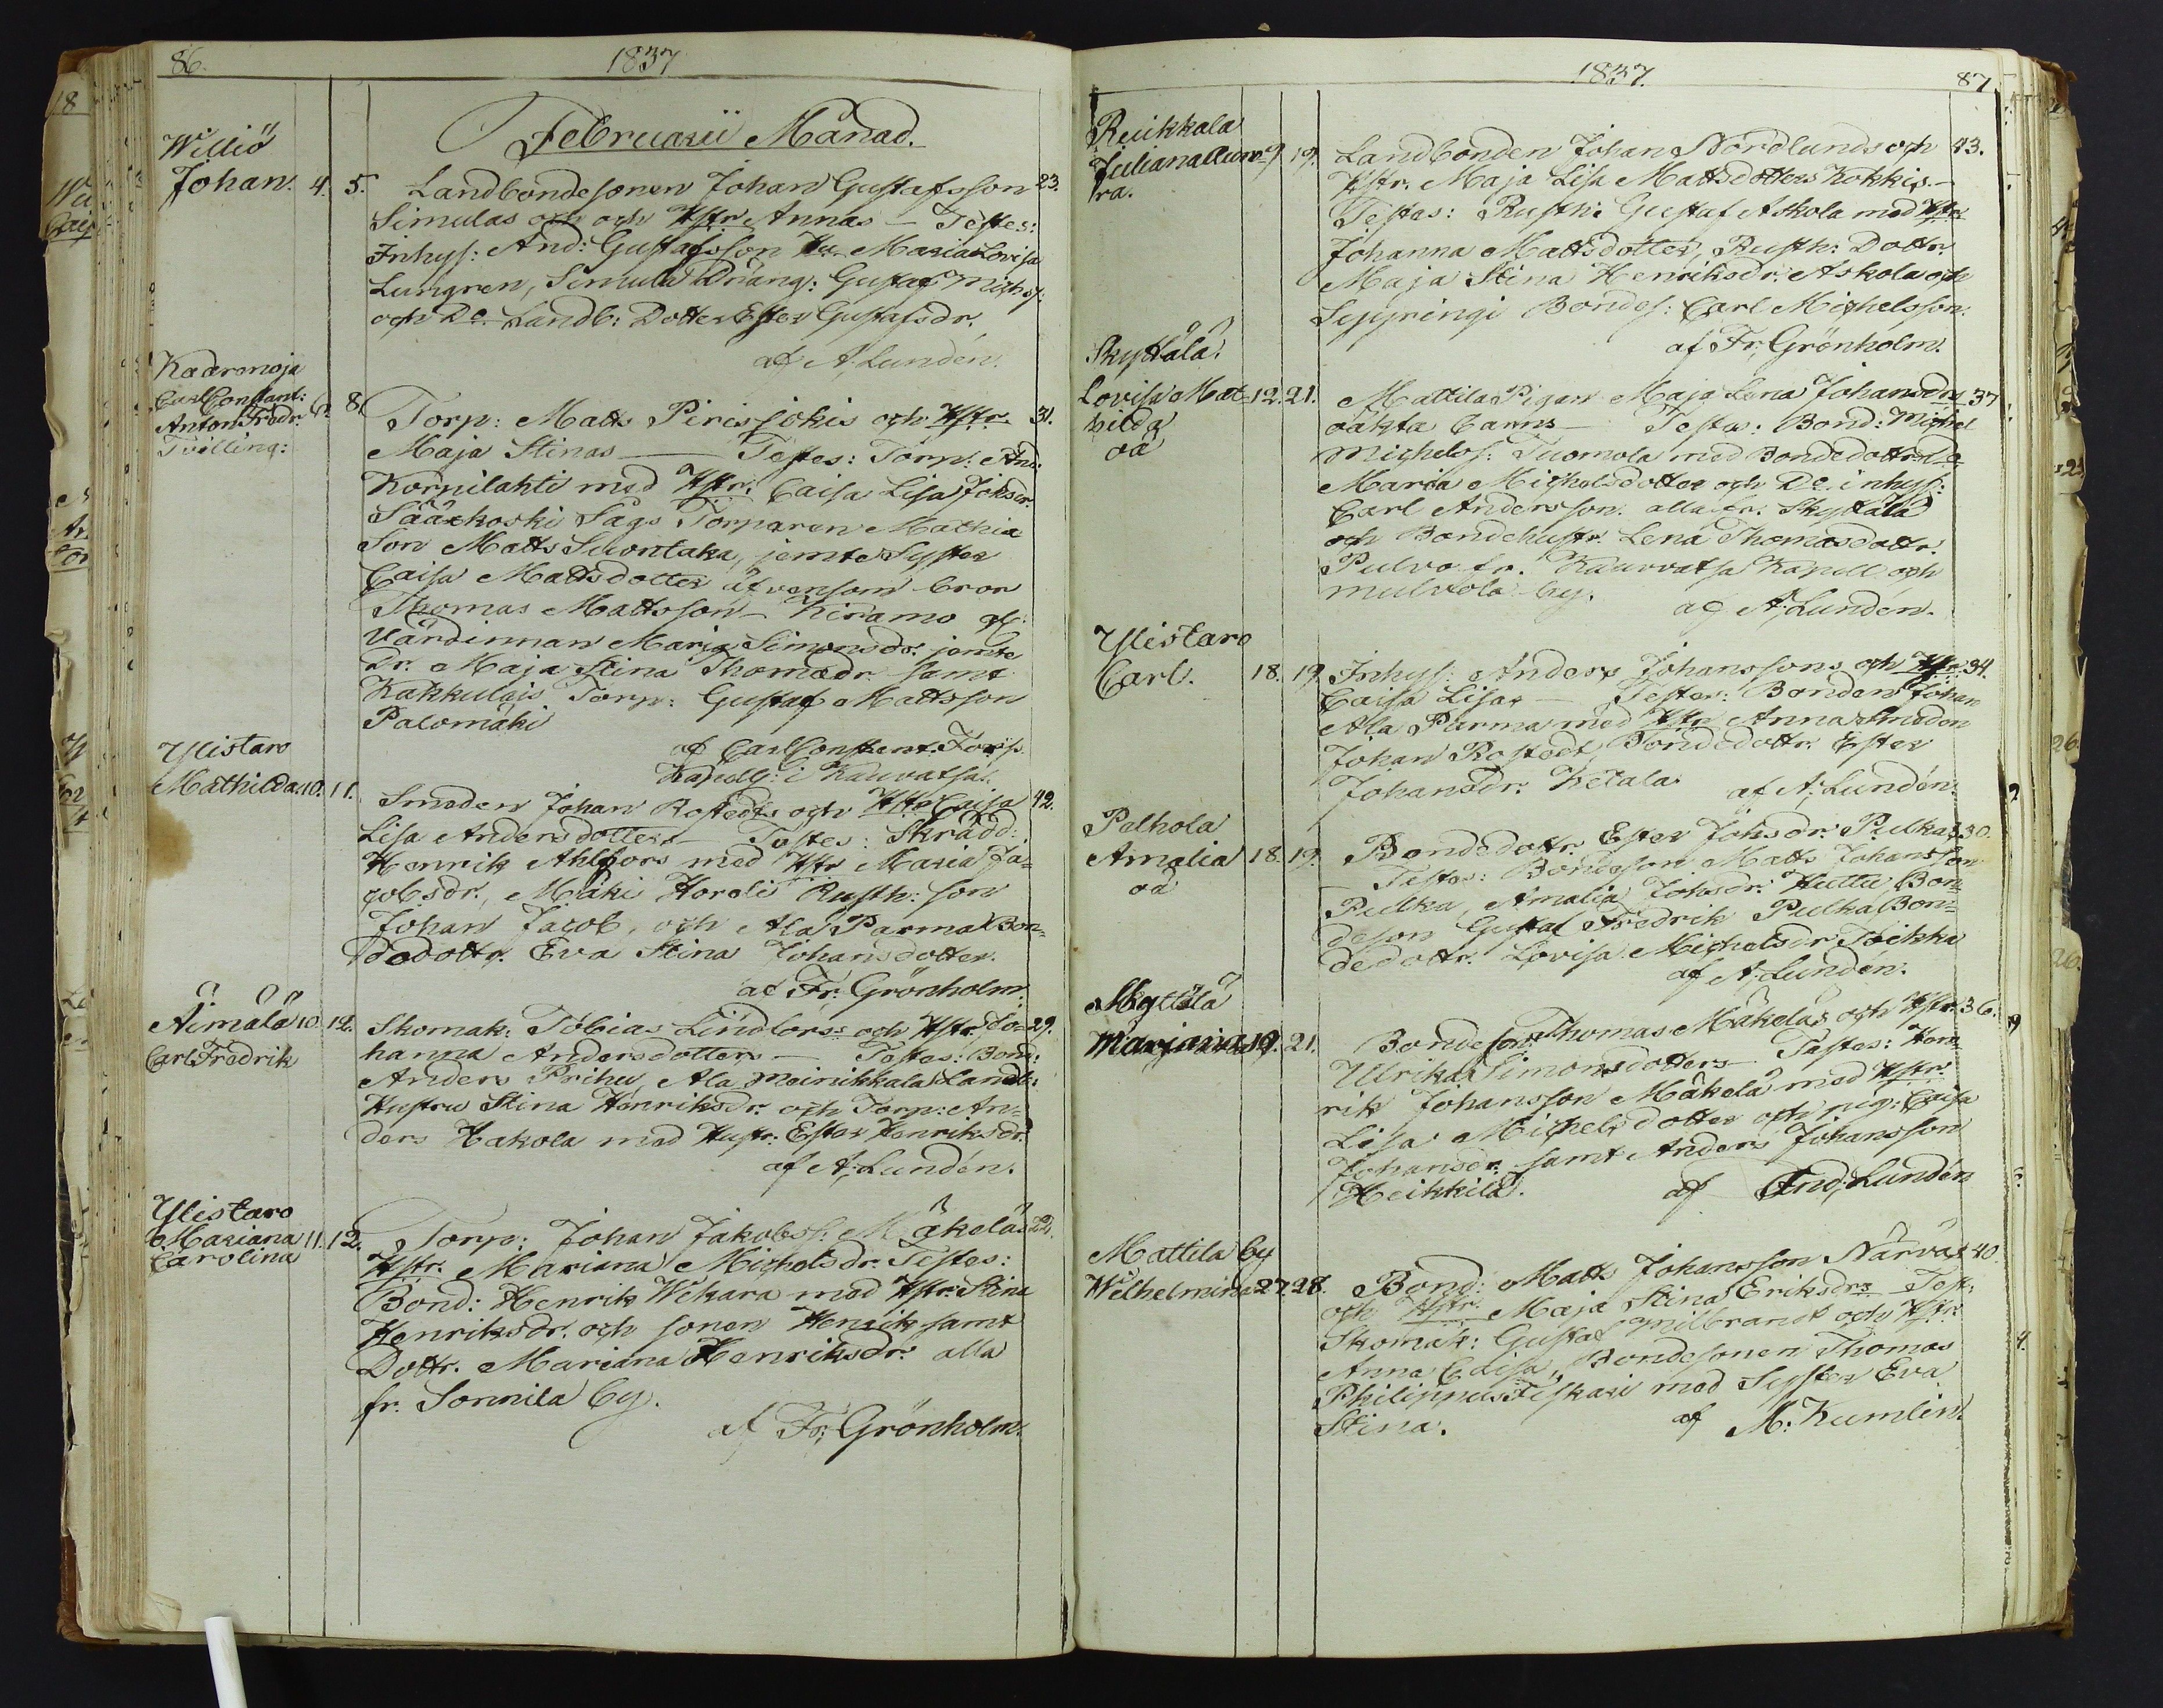 86.
1837
Februarii Månad.
Williö
Johan. 4. 5. Landbondesonen Johan Gustafsson 23.
Simulas och och Hstr Annas — Testes:
Inhys: And: Gustafsson Hu Maria Lovisa
Lungren, Simula Dräng: Gustaf Michels:
och Do. Landb: Dotter Ester Gustafsdr.
af A, Lundén.
Kaarenoja
Carl Constant:
Anton Fredr. 6. 8. Torp: Matts Pirisjokis och Hstr 31.
Tvilling:
Maja Stinas — Testes: Torp: And:
Korpilahti med Hstr. Caisa Lisa Johsdr.
Sääxkoski Sågs Torparen Mathia
Son Matts Suontaka, jemte Syster
Caisa Mattsdotter äfvensom bror
Thomas Mattsson — Kiramo
Värdinnan Maria Simonsdr. jemte
Dr. Maja Stina Thomadr. samt
Kakkulais Torp: Gustaf Mattsson
Palomäki
af Carl Constant. Forss
Kapell: i Kauvatsa.
Ylistaro
Mathilda. 10. 11. Smeden Johan Rostedts och Hstr Caisa 42.
Lisa Andersdotters — Testes: Skrädd:
Henrik Ahlfors med Hstr Maria Ja-
cobsdr., Mäki Horeli Rusth: son
Johan Jacob, och Ala Parma Bon-
dedottr. Eva Stina Johansdotter.
af Fr. Grönholm.
Äimälä 10. 12. Skomak: Tobias Lindfors: och Hstr Jo- 29.
Carl Fredrik
hanna Andersdotters — Testes: Bond:
Anders Prihu, Ala Meinikkala Landb:
Hustru Stina Henriksdr. och Torp: An-
ders Hakola med Hustr: Ester Henriksdr.
af A, Lundén.
Ylistaro
Mariana 11. 12. Torp: Johan Jakobss: Mäkeläs 22.
Carolina
Hstr. Mariana Michelsdr. Testes:
Bond: Henrik Wekara med Hstr. Stina
Henriksdr. och sonen Henrik samt
Dottr. Mariana Henriksdr. alla
fr. Sonnila by.
af Fr; Grönholm.
1837.
87
Ruikkala
Juliana Auro- 9 19. Landbonden Johan Nordlunds och 43.
ra.
Hstr. Maja Lisa Mattsdotters Kokkis. —
Testes: Rusth: Gustaf Askola med Hstr
Johanna Mattsdotter, Rusth: Dottr.
Maja Stina Henriksdr. Askola och
Seppringi Bondes: Carl Michelsson.
af Fr, Grönholm.
Skyttälä.
Lovisa Mat- 12. 21. Mattila Pigan Maja Lena Johansdrs 37
hilda
oä
oäkta barns — Testes: Bond: Michel
Michels: Tuomola med Bondedottr. Do
Maria Michelsdotter och Do. inhys:
Carl Andersson. alla fr. Skyttälä
och Bondehustr. Lena Thomasdottr.
Pulvo fr. Kauvatsa Kapell och
Mulvola by.
af A, Lundén.
Ylistaro
Carl. 18. 19 Inhys: Anders Johanssons och Hstr 34.
Caisa Lisas — Testes: Bonden Johan
Ala Parma med Hstr Anna Smeden
Johan Rostedt, Bondedottr. Ester
Johansdr. Ketala
af A, Lundén.
Palhola
Amalia 18. 19. Bondedottr. Ester Johsdr. Pulkas 30.
oä
Testes: Bondeson Matts Johansson
Pulka, Amalia Johsdr. Huttu Bon-
deson Gustaf Fredrik Pulka Bon-
dedottr. Lovisa Michelsdr. Toikka
af A, Lundén.
Skyttälä
Marjana 19. 21. Bondeson Thomas Mäkeläs och Hstr. 36.
Ulrika Simonsdotters — Testes: Hen-
rik Johansson Mäkelä med Hstr.
Lisa Michelsdotter och pig: Caisa
Johansdr. samt Anders Johansson
Heikkilä.
af And, Lundén
Mattila by
Wilhelmina 27. 28. Bond: Matts Johansson Närväs 40.
och Hstr. Maja Stina Eriksdrs Test:
Skomak: Gustaf Milbrandt och Hstr.
Anna Lisa, Bondesonen Thomas
Philippus Tiskari med Syster Eva
Stina.
af M: Kumlin.